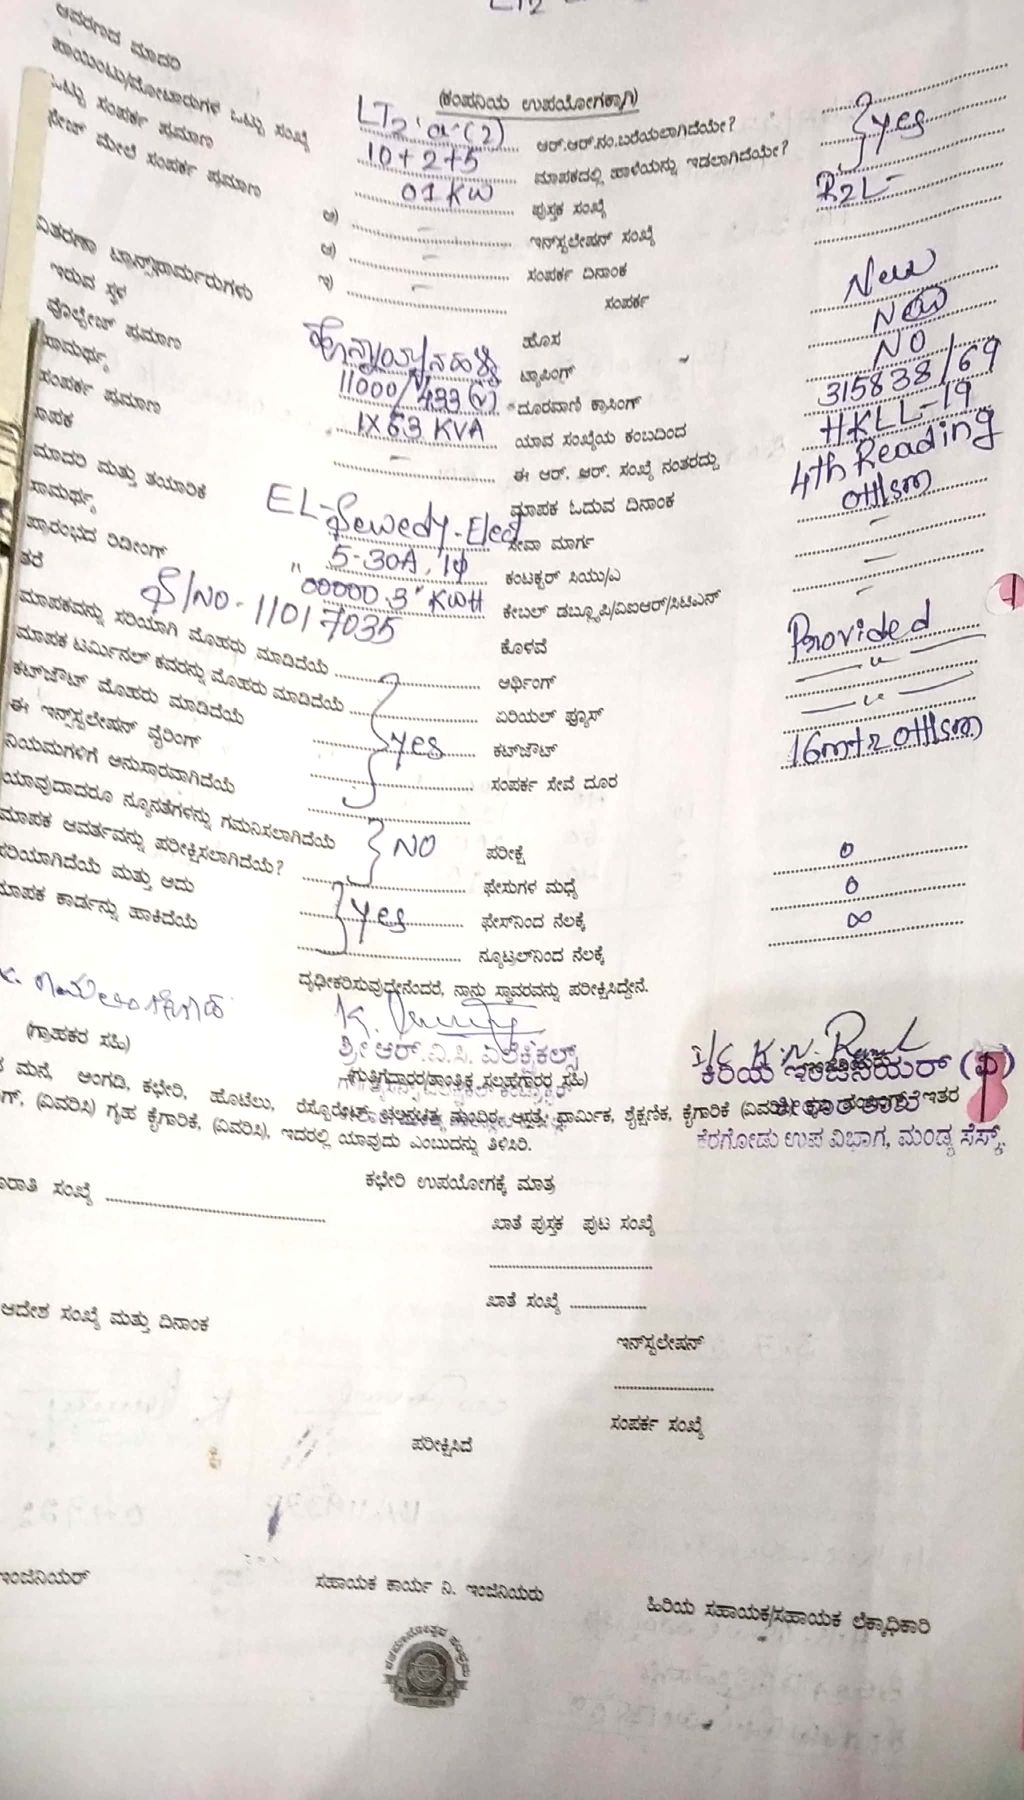 LT2
ಆವರಣದ ಮಾದರಿ
(ಕಂಪನಿಯ ಉಪಯೋಗಕ್ಕಾಗಿ)
ಪಾಯಿಂಟು/ಮೋಟಾರುಗಳ ಒಟ್ಟು ಸಂಖ್ಯೆ LT2 a (2) ಆರ್.ಆರ್.ನಂ.ಬರೆಯಲಾಗಿದೆಯೇ? yes
ಒಟ್ಟು ಸಂಪರ್ಕ ಪ್ರಮಾಣ 10+2+5 ಮಾಪಕದಲ್ಲಿ ಹಾಳೆಯನ್ನು ಇಡಲಾಗಿದೆಯೇ?
ಮೇಲೆ ಸಂಪರ್ಕ ಪ್ರಮಾಣ 01 KW ಪುಸ್ತಕ ಸಂಖ್ಯೆ
ಅ) ಇನ್‌ಸ್ಟಲೇಷನ್ ಸಂಖ್ಯೆ
ಆ) ಸಂಪರ್ಕ ದಿನಾಂಕ
ಇ) ಸಂಪರ್ಕ New
ವಿತರಣಾ ಟ್ರಾನ್ಸ್‌ಫಾರ್ಮರುಗಳು ಹೊಸ New
ಇರುವ ಸ್ಥಳ ಟ್ಯಾಪಿಂಗ್ NO
ವೊಲ್ಟೇಜ್ ಪ್ರಮಾಣ 11000/433 (V) ದೂರವಾಣಿ ಕ್ರಾಸಿಂಗ್ 315838/69
ಸಾಮರ್ಥ್ಯ 1X63 KVA ಯಾವ ಸಂಖ್ಯೆಯ ಕಂಬದಿಂದ HKLL-19
ಸಂಪರ್ಕ ಪ್ರಮಾಣ ಈ ಆರ್. ಆರ್. ಸಂಖ್ಯೆ ನಂತರದ್ದು 4th Reading
ಮಾಪಕ ಓದುವ ದಿನಾಂಕ
ಮಾದರಿ ಮತ್ತು ತಯಾರಿಕೆ EL-Sewedy-Elect ಸೇವಾ ಮಾರ್ಗ
ಸಾಮರ್ಥ್ಯ 5-30A, 1ф ಕಂಟಕ್ಟರ್ ಸಿಯು/ಎ
ಪ್ರಾರಂಭದ ರಿಡೀಂಗ್ 00000.3 KWH ಕೇಬಲ್ ಡಬ್ಲ್ಯೂಪಿ/ವಿಐಆರ್/ಸಿಟಿಎಸ್
ತರೆ S/NO-11017035 ಕೊಳವೆ Provided
ಮಾಪಕವನ್ನು ಸರಿಯಾಗಿ ಮೊಹರು ಮಾಡಿದೆಯೆ ಆರ್ಥಿಂಗ್ — " —
ಮಾಪಕ ಟರ್ಮಿನಲ್ ಕವರನ್ನು ಮೊಹರು ಮಾಡಿದೆಯೆ ಏರಿಯಲ್ ಫ್ಯೂಸ್ — " —
ಕಟ್‌ಔಟ್ ಮೊಹರು ಮಾಡಿದೆಯೆ yes ಕಟ್‌ಔಟ್
ಈ ಇನ್ಸ್‌ಸ್ಟಲೇಷನ್ ವೈರಿಂಗ್ ಸಂಪರ್ಕ ಸೇವೆ ದೂರ
ನಿಯಮಗಳಿಗೆ ಅನುಸಾರವಾಗಿದೆಯೆ
ಯಾವುದಾದರೂ ನ್ಯೂನತೆಗಳನ್ನು ಗಮನಿಸಲಾಗಿದೆಯೆ NO ಪರೀಕ್ಷೆ
ಮಾಪಕ ಆವರ್ತವನ್ನು ಪರೀಕ್ಷಿಸಲಾಗಿದೆಯೆ? ಫೇಸುಗಳ ಮಧ್ಯೆ 0
ಸರಿಯಾಗಿದೆಯೆ ಮತ್ತು ಅದು yes ಫೇಸ್‌ನಿಂದ ನೆಲಕ್ಕೆ 0
ಮಾಪಕ ಕಾರ್ಡನ್ನು ಹಾಕಿದೆಯೆ ನ್ಯೂಟ್ರಲ್‌ನಿಂದ ನೆಲಕ್ಕೆ ∞
ದೃಢೀಕರಿಸುವುದೇನೆಂದರೆ, ನಾನು ಸ್ಥಾವರವನ್ನು ಪರೀಕ್ಷಿಸಿದ್ದೇನೆ.
(ಗ್ರಾಹಕರ ಸಹಿ)
ಶ್ರೀ ಆರ್.ವಿ.ಸಿ. ಎಲೆಕ್ಟ್ರಿಕಲ್ಸ್
(ಗುತ್ತಿಗೆದಾರರ/ತಾಂತ್ರಿಕ ಸಲ್ಲಹೆಗಾರರ ಸಹಿ)
ಕಿರಿಯ ಇಂಜಿನಿಯರ್ (ವಿ)
ಮನೆ, ಅಂಗಡಿ, ಕಛೇರಿ, ಹೊಟೆಲು, ರೆಸ್ಟೊರೆಂಟ್, ಚಲನಚಿತ್ರ ಮಂದಿರ, ಆಸ್ಪತ್ರೆ, ಧಾರ್ಮಿಕ, ಶೈಕ್ಷಣಿಕ, ಕೈಗಾರಿಕೆ ಇತರ
(ವಿವರಿಸಿ) ಗೃಹ ಕೈಗಾರಿಕೆ, (ವಿವರಿಸಿ), ಇದರಲ್ಲಿ ಯಾವುದು ಎಂಬುದನ್ನು ತಿಳಿಸಿರಿ.
ಕೆರಗೋಡು ಉಪ ವಿಭಾಗ, ಮಂಡ್ಯ ಸೆಸ್ಕ್.
ಕಛೇರಿ ಉಪಯೋಗಕ್ಕೆ ಮಾತ್ರ
ಸಂಖ್ಯೆ
ಖಾತೆ ಪುಸ್ತಕ ಪುಟ ಸಂಖ್ಯೆ
ಖಾತೆ ಸಂಖ್ಯೆ
ಆದೇಶ ಸಂಖ್ಯೆ ಮತ್ತು ದಿನಾಂಕ
ಇನ್‌ಸ್ಟಲೇಷನ್
ಸಂಪರ್ಕ ಸಂಖ್ಯೆ
ಪರೀಕ್ಷಿಸಿದೆ
ಇಂಜಿನಿಯರ್ ಸಹಾಯಕ ಕಾರ್ಯ ನಿ. ಇಂಜಿನಿಯರು ಹಿರಿಯ ಸಹಾಯಕ/ಸಹಾಯಕ ಲೆಕ್ಕಾಧಿಕಾರಿ